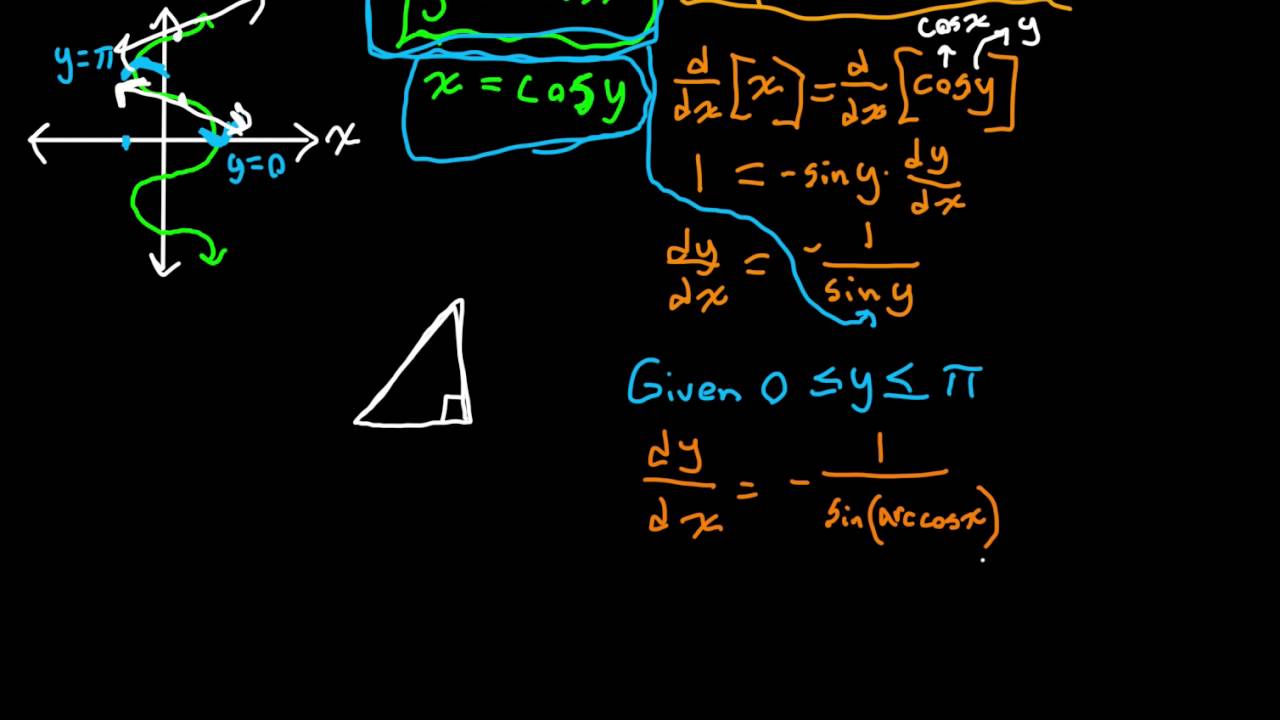 cosx
y
y=π
x = cosy
d/dx [x] = d/dx [cosy]
x
y=0
1 = -siny · dy/dx
dy/dx = - 1/siny
Given 0 ≤ y ≤ π
dy/dx = - 1/sin(arccosx)